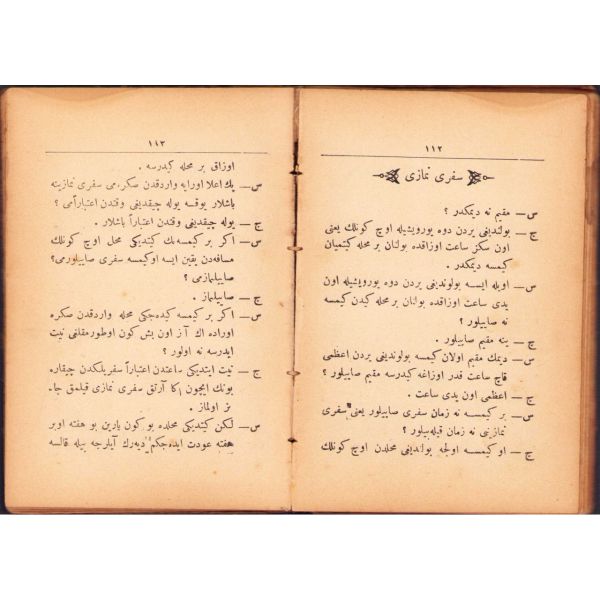 ١١٢
سفری نمازی
س — مقیم نه دیمکدر ؟
ج — بولندیغی یردن دوه یورویشیله اوچ کونلك یعنی
اون سکز ساعت اوزاقده بولنان بر محله کیتمیان
کیمسه دیمکدر .
س — اویله ایسه بولوندیغی یردن دوه یورویشیله اون
یدی ساعت اوزاقده بولنان بر محله کیدن کیمسه
نه صاییلور ؟
ج — ینه مقیم صاییلور .
س — دیمك مقیم اولان کیمسه بولوندیغی یردن اعظمی
قاچ ساعت قدر اوزاغه کیدرسه مقیم صاییلور ؟
ج — اعظمی اون یدی ساعت .
س — بر کیمسه نه زمان سفری صاییلور یعنی سفری
نمازینی نه زمان قیله بیلور ؟
ج — او کیمسه اولجه بولندیغی محلدن اوچ کونلك
١١٣
اوزاق بر محله کیدرسه .
س — پك اعلا اورایه واردقدن صکره می سفری نمازینه
باشلار یوقسه یوله چیقدیغی وقتدن اعتباراًمی ؟
ج — یوله چیقدیغی وقتدن اعتباراً باشلار .
س — اکر بر کیمسه نك کیتدیکی محل اوچ کونلك
مسافه دن یقین ایسه اوکیمسه سفری صاییلورمی ؟
صاییلمازمی ؟
ج — صاییلماز .
س — اکر بر کیمسه کیده جکی محله واردقدن صکره
اوراده اك آز اون بش کون اوطورمقلغی نیت
ایدرسه نه اولور ؟
ج — نیت ایتدیکی ساعتدن اعتباراً سفریلکدن چیقار.
بونك ایچون اکا آرتق سفری نمازی قیلمق جا-
ئز اولماز .
س — لکن کیتدیکی محلده بو کون یارین بو هفته اوبر
هفته عودت ایده جکم دیه رك آیلرجه بیله قالسه